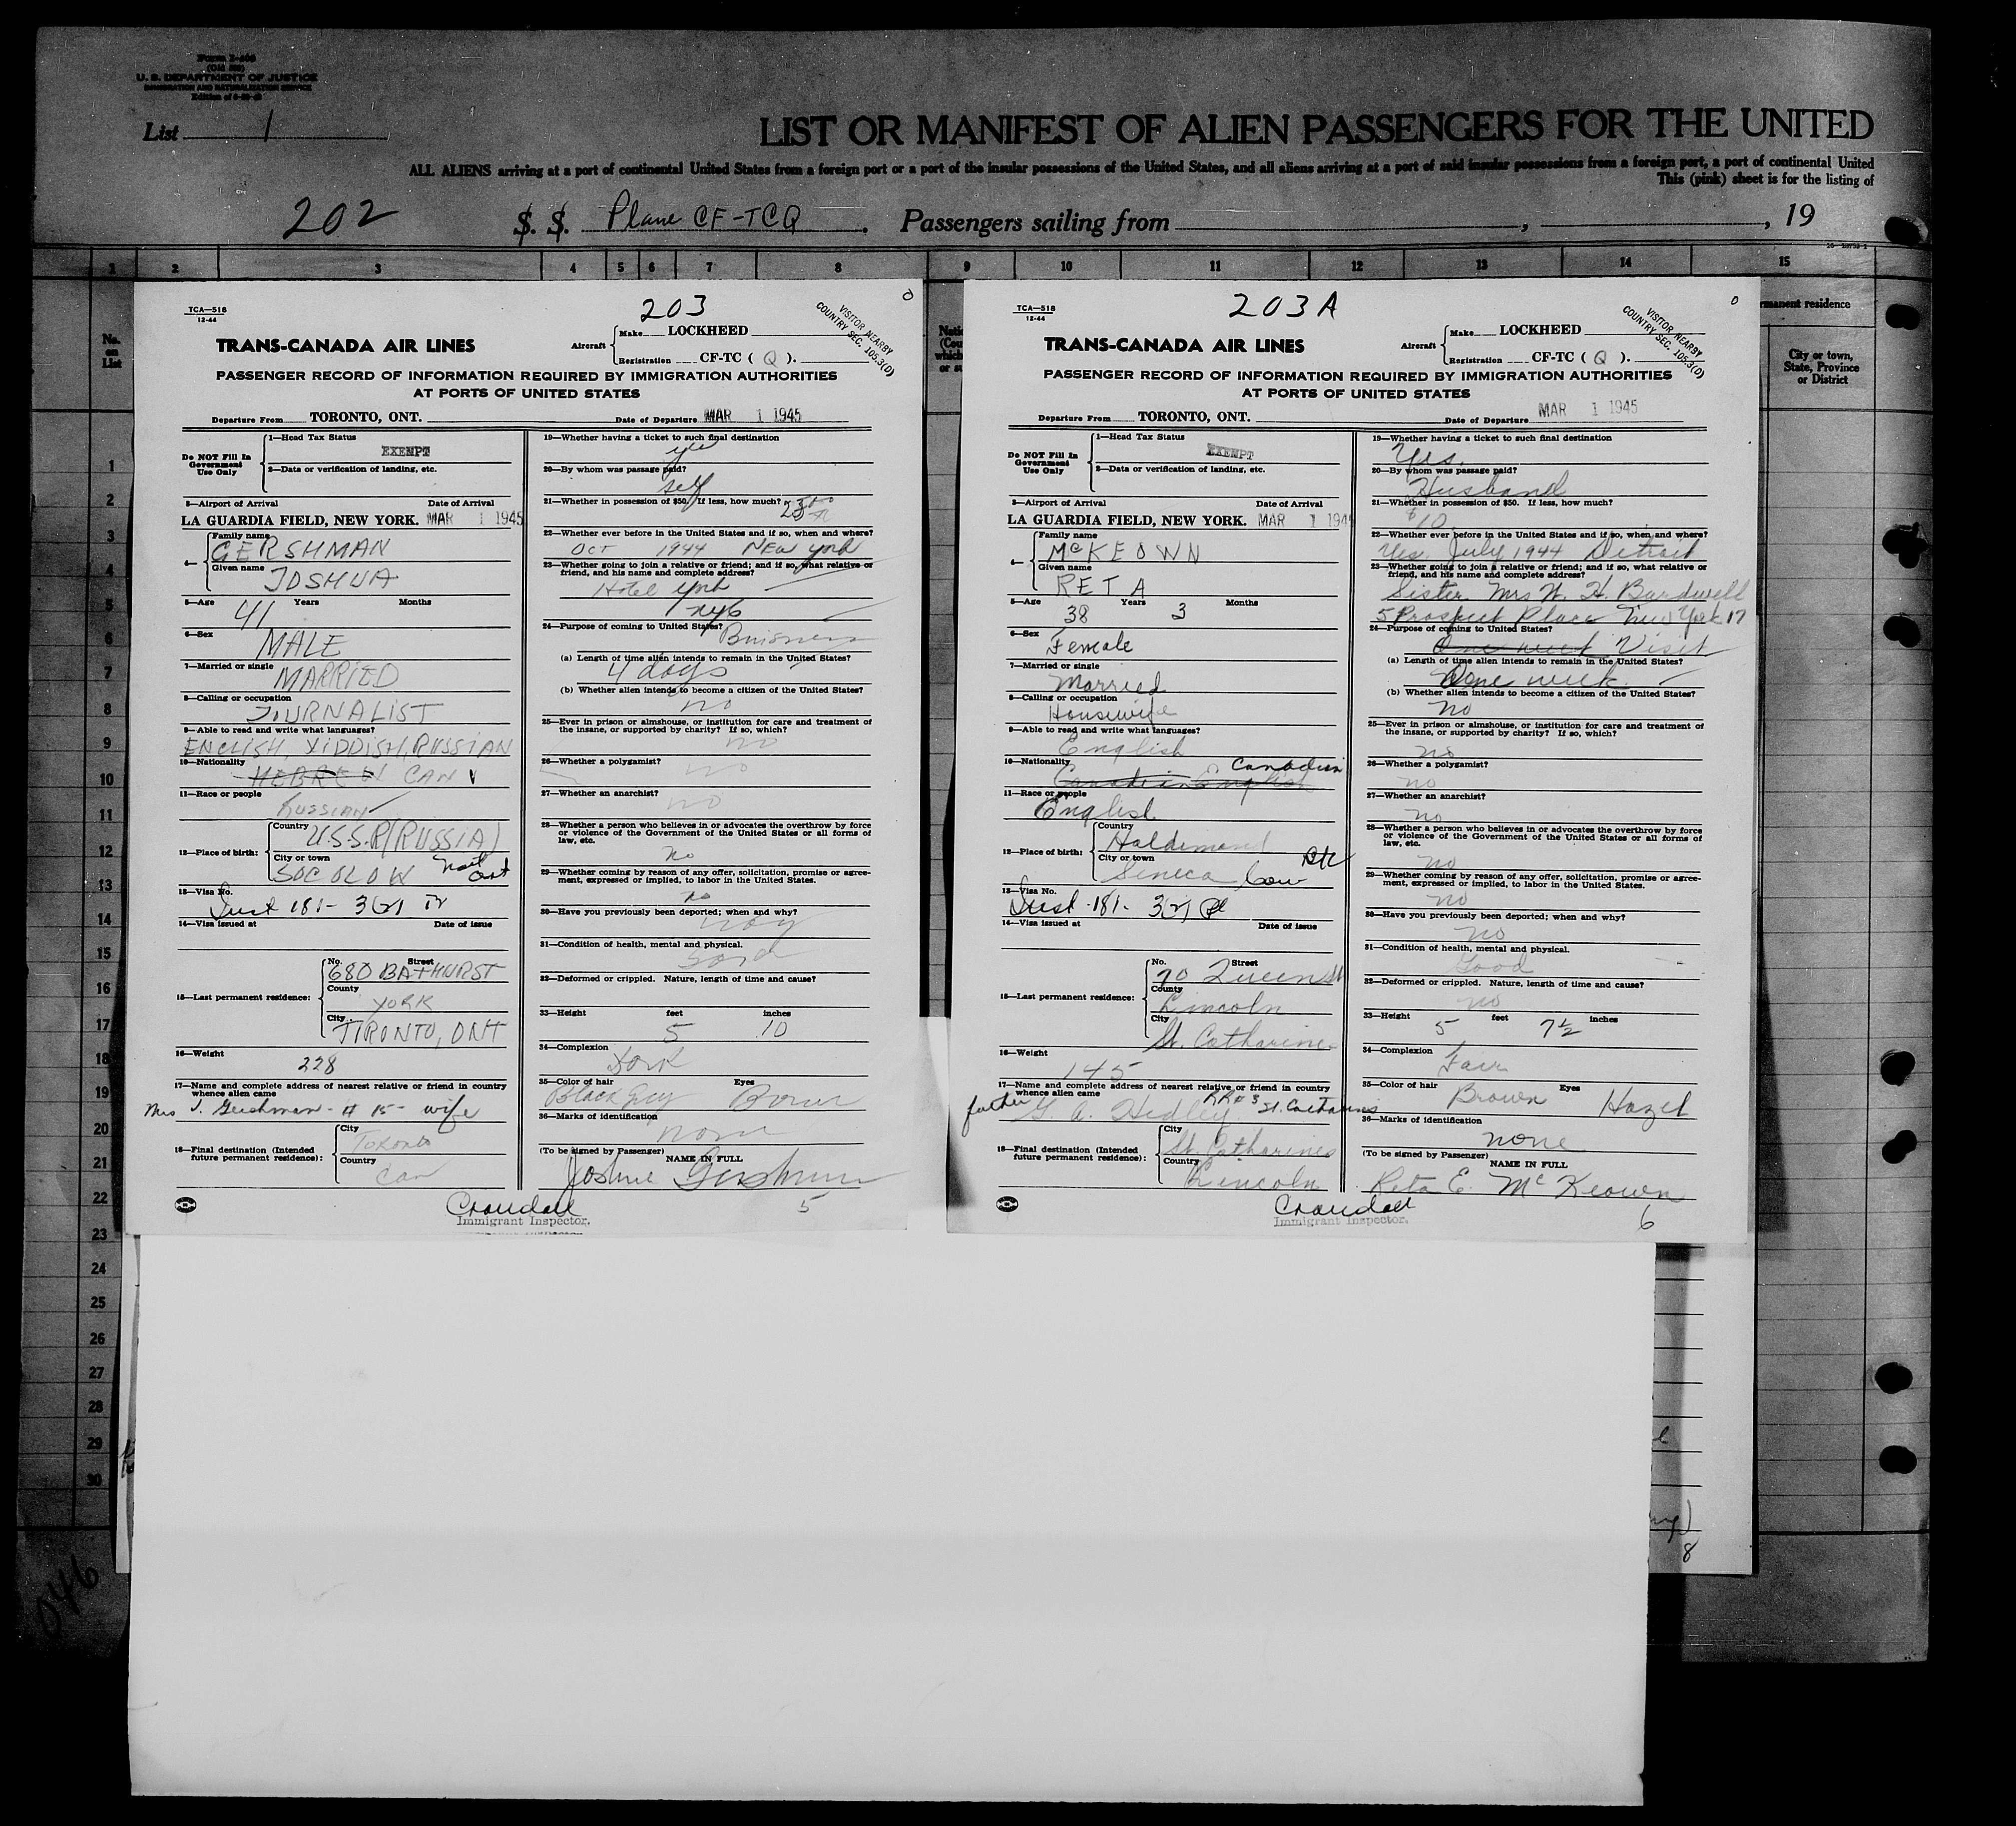 Form I-466
(Old 500)
U. S. DEPARTMENT OF JUSTICE
IMMIGRATION AND NATURALIZATION SERVICE
List 1
LIST OR MANIFEST OF ALIEN PASSENGERS FOR THE UNITED
ALL ALIENS arriving at a port of continental United States from a foreign port or a port of the insular possessions of the United States, and all aliens arriving at a port of said insular possessions from a foreign port, a port of continental United
This (pink) sheet is for the listing of
202 S. S. Plane CF-TCQ. Passengers sailing from , , 19
1 2 3 4 5 6 7 8 9 10 11 12 13 14 15
No. on List
rmanent residence
City or town, State, Province or District
1
2
3
4
5
6
7
8
9
10
11
12
13
14
15
16
17
18
19
20
21
22
23
24
25
26
27
28
29
30
046
8
TCA—518
12-44
203
VISITOR NEARBY
COUNTRY SEC. 105.3(D)
TRANS-CANADA AIR LINES
Aircraft Make LOCKHEED
Registration CF-TC ( Q ).
PASSENGER RECORD OF INFORMATION REQUIRED BY IMMIGRATION AUTHORITIES
AT PORTS OF UNITED STATES
Departure From TORONTO, ONT. Date of Departure MAR 1 1945
Do NOT Fill In Government Use Only
1—Head Tax Status EXEMPT
2—Data or verification of landing, etc.
3—Airport of Arrival Date of Arrival
LA GUARDIA FIELD, NEW YORK. MAR 1 1945
4— Family name GERSHMAN
Given name JOSHUA
5—Age 41 Years Months
6—Sex MALE
7—Married or single MARRIED
8—Calling or occupation JOURNALIST
9—Able to read and write what languages?
ENGLISH, YIDDISH, RUSSIAN
10—Nationality HEBREW CAN
11—Race or people RUSSIAN
12—Place of birth: Country U.S.S.R (RUSSIA)
City or town SOCOLOW
13—Visa No. 181- 3(2)
14—Visa issued at Date of issue
15—Last permanent residence: No. Street 680 BATHURST
County YORK
City TORONTO, ONT
16—Weight 228
17—Name and complete address of nearest relative or friend in country whence alien came
Mrs J. Gershman - # 15 - wife
18—Final destination (Intended future permanent residence): City Toronto
Country Can
19—Whether having a ticket to such final destination
yes
20—By whom was passage paid?
self
21—Whether in possession of $50. If less, how much?
22—Whether ever before in the United States and if so, when and where?
OCT 1944 NEW York
23—Whether going to join a relative or friend; and if so, what relative or friend, and his name and complete address?
Hotel York
NYC
24—Purpose of coming to United States? Buisness
(a) Length of time alien intends to remain in the United States?
4 days
(b) Whether alien intends to become a citizen of the United States?
no
25—Ever in prison or almshouse, or institution for care and treatment of the insane, or supported by charity? If so, which?
no
26—Whether a polygamist? no
27—Whether an anarchist? no
28—Whether a person who believes in or advocates the overthrow by force or violence of the Government of the United States or all forms of law, etc.
no
29—Whether coming by reason of any offer, solicitation, promise or agreement, expressed or implied, to labor in the United States.
no
30—Have you previously been deported; when and why?
31—Condition of health, mental and physical.
good
32—Deformed or crippled. Nature, length of time and cause?
33—Height 5 feet 10 inches
34—Complexion Dark
35—Color of hair Black Grey Eyes Brown
36—Marks of identification none
(To be signed by Passenger) NAME IN FULL
Joshua Gershman
Crandall
Immigrant Inspector.
5
TCA—518
12-44
203A
VISITOR NEARBY
COUNTRY SEC. 105.3(D)
TRANS-CANADA AIR LINES
Aircraft Make LOCKHEED
Registration CF-TC ( Q ).
PASSENGER RECORD OF INFORMATION REQUIRED BY IMMIGRATION AUTHORITIES
AT PORTS OF UNITED STATES
Departure From TORONTO, ONT. Date of Departure MAR 1 1945
Do NOT Fill In Government Use Only
1—Head Tax Status EXEMPT
2—Data or verification of landing, etc.
3—Airport of Arrival Date of Arrival
LA GUARDIA FIELD, NEW YORK. MAR 1 1945
4— Family name McKEOWN
Given name RETA
5—Age 38 Years 3 Months
6—Sex Female
7—Married or single Married
8—Calling or occupation Housewife
9—Able to read and write what languages?
English
10—Nationality Canadian English Canadian
11—Race or people English
12—Place of birth: Country Haldimand
City or town Seneca
13—Visa No. 181- 3(2)
14—Visa issued at Date of issue
15—Last permanent residence: No. Street 70 Queen St
County Lincoln
City St. Catharines
16—Weight 145
17—Name and complete address of nearest relative or friend in country whence alien came
father G. A. Hedley RR#3 St. Catharines
18—Final destination (Intended future permanent residence): City St. Catharines
Country Lincoln
19—Whether having a ticket to such final destination
Yes.
20—By whom was passage paid?
Husband
21—Whether in possession of $50. If less, how much?
$10.
22—Whether ever before in the United States and if so, when and where?
Yes. July 1944 Detroit
23—Whether going to join a relative or friend; and if so, what relative or friend, and his name and complete address?
Sister Mrs W. H. Bardwell
5 Prospect Place New York 17
24—Purpose of coming to United States?
One week Visit
(a) Length of time alien intends to remain in the United States?
One week.
(b) Whether alien intends to become a citizen of the United States?
no
25—Ever in prison or almshouse, or institution for care and treatment of the insane, or supported by charity? If so, which?
no
26—Whether a polygamist?
no
27—Whether an anarchist?
no
28—Whether a person who believes in or advocates the overthrow by force or violence of the Government of the United States or all forms of law, etc.
no
29—Whether coming by reason of any offer, solicitation, promise or agreement, expressed or implied, to labor in the United States.
no
30—Have you previously been deported; when and why?
no
31—Condition of health, mental and physical.
Good
32—Deformed or crippled. Nature, length of time and cause?
no
33—Height 5 feet 7½ inches
34—Complexion Fair
35—Color of hair Brown Eyes Hazel
36—Marks of identification
none
(To be signed by Passenger) NAME IN FULL
Reta E. McKeown
Crandall
Immigrant Inspector.
6